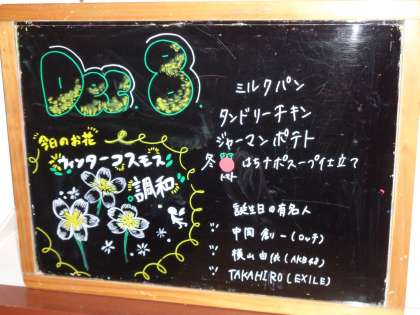 Dec 8
今日のお花
ウィンターコスモス
調和
ミルクパン
タンドリーチキン
ジャーマンポテト
冬トマト はちナポスープ仕立て
誕生日の有名人
〃 中岡創一(ロッチ)
〃 横山由依(AKB48)
〃 TAKAHIRO(EXILE)